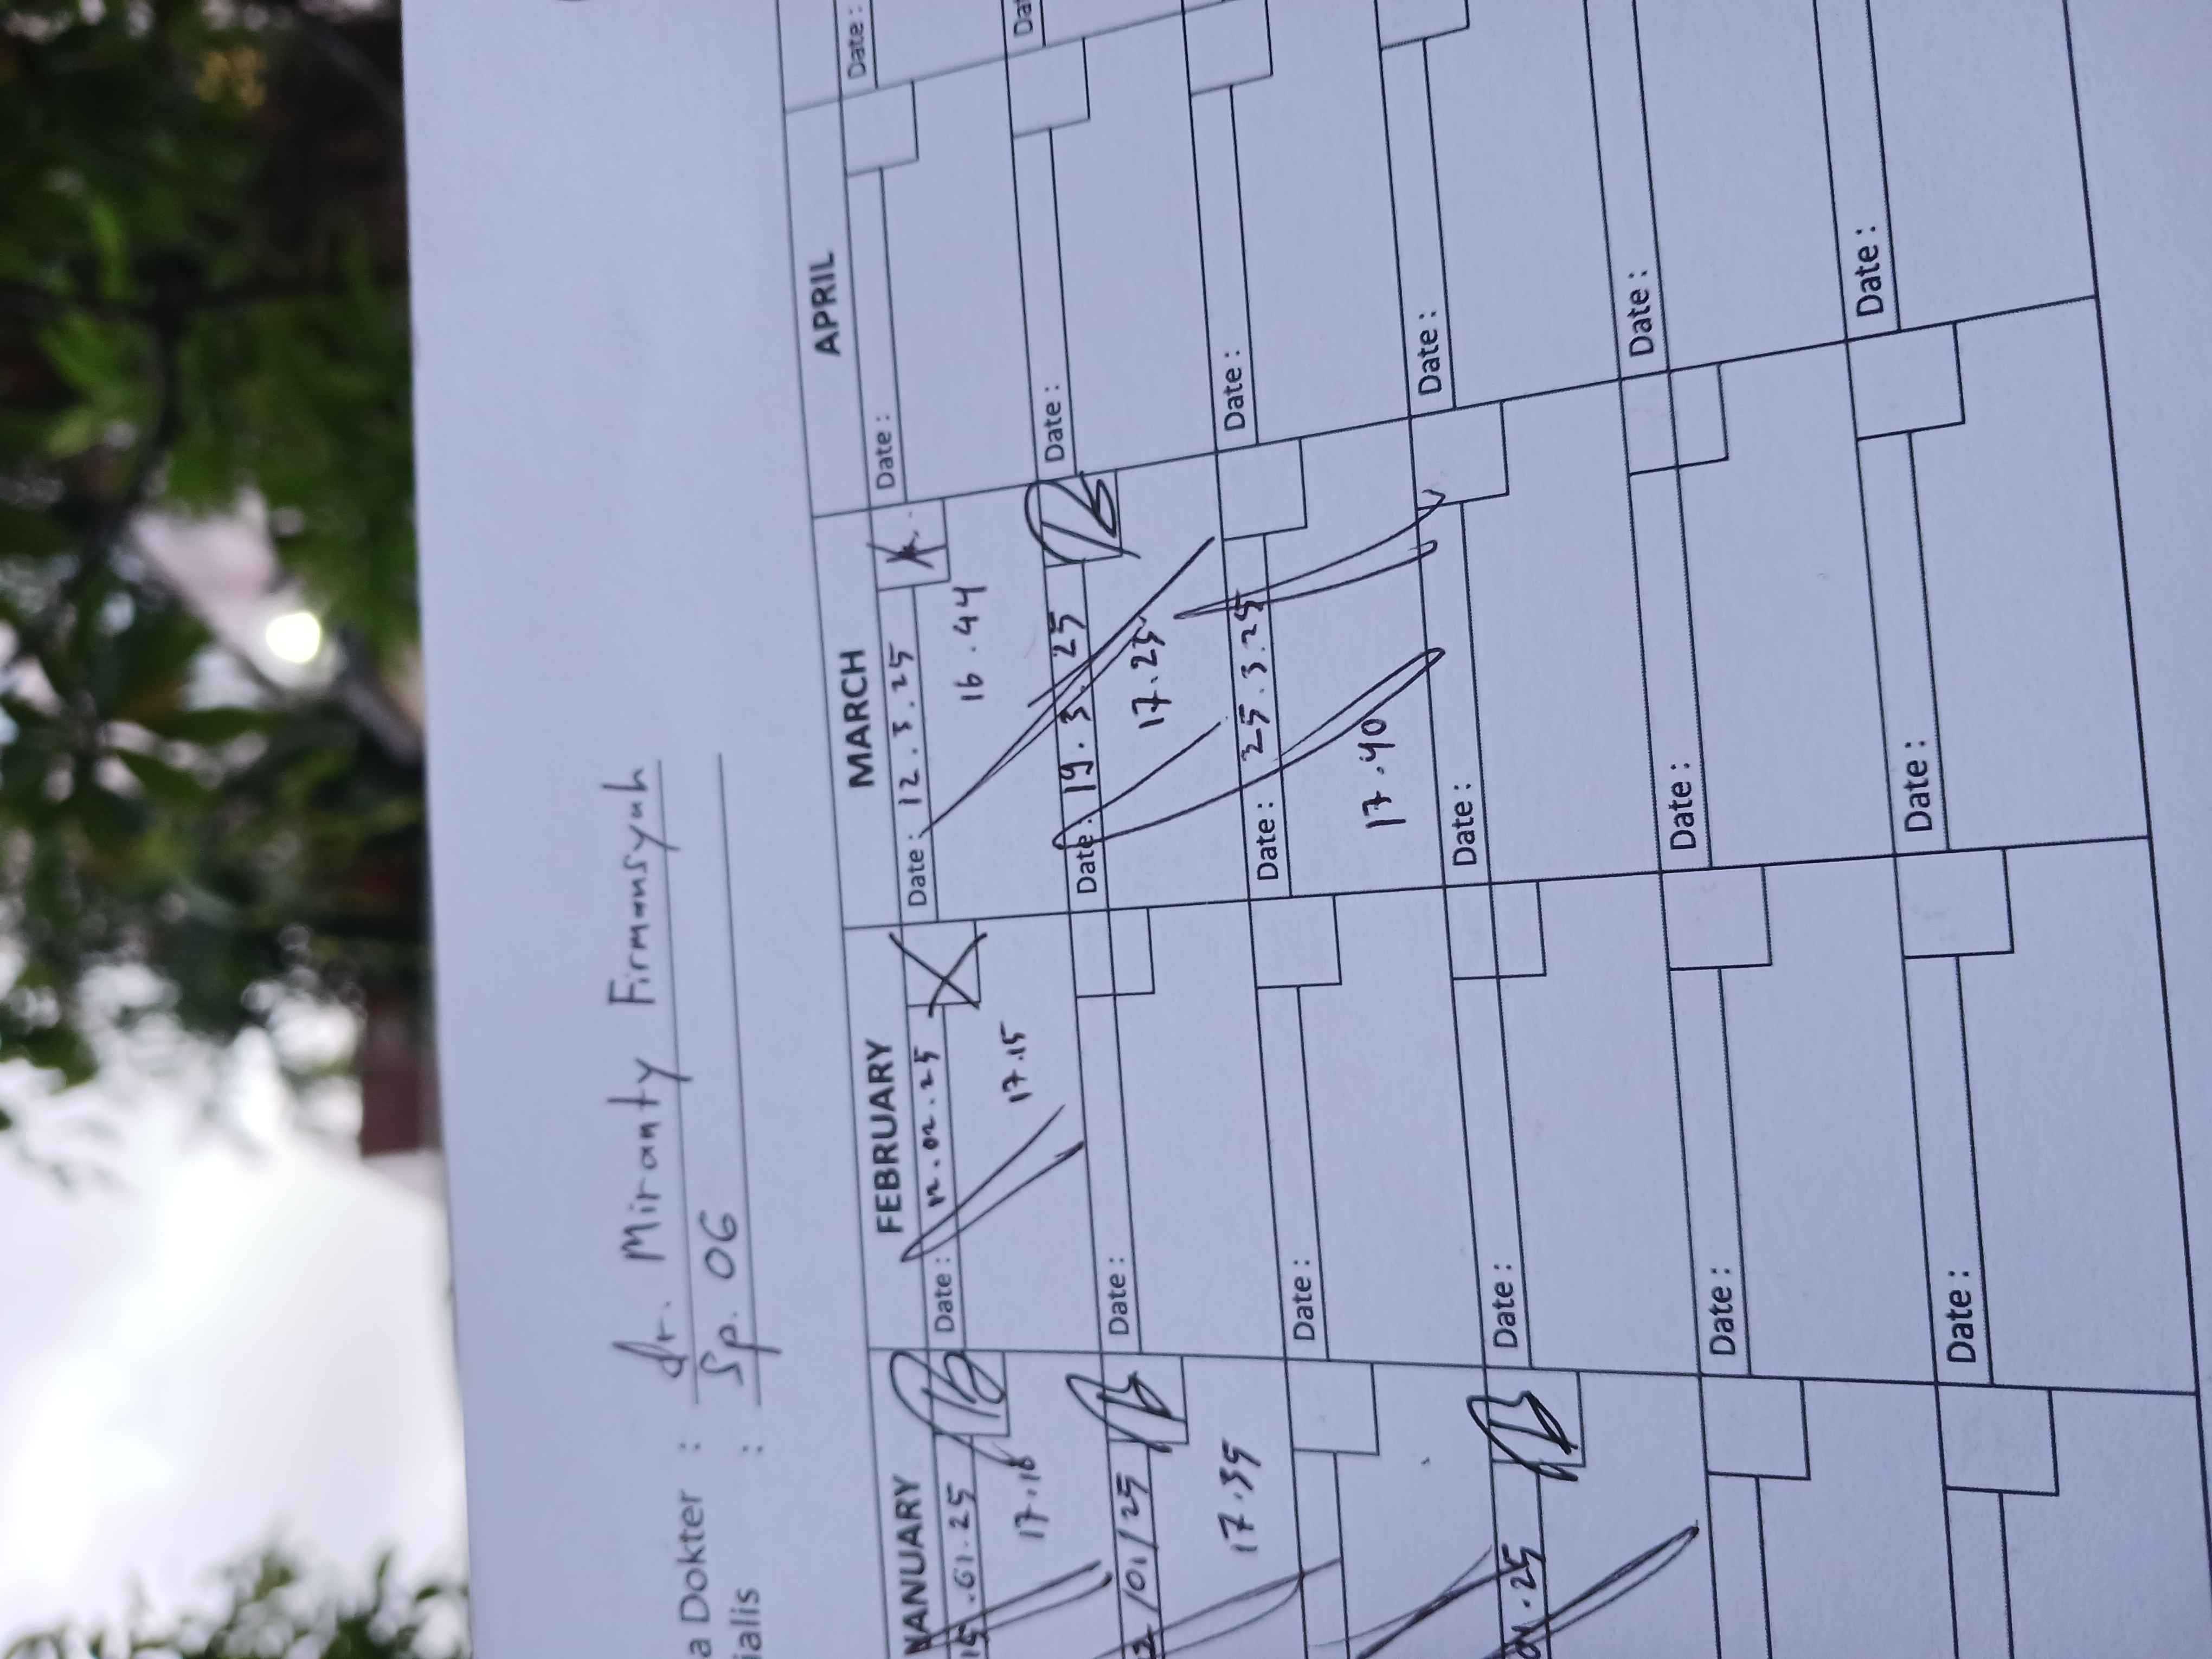 a Dokter : dr. Miranty Firmansyah
ialis : Sp. OG
NANUARY FEBRUARY MARCH APRIL
15.01.25 Date : 12.02.25 Date : 12.3.25 Date : Date :
17.16 17.15 16.44
/01/25 Date : Date : 19.3.25 Date : Dat
17.39 17.23
Date : Date : 25.3.25 Date :
17.40
.25 Date : Date : Date :
Date : Date : Date :
Date : Date : Date :